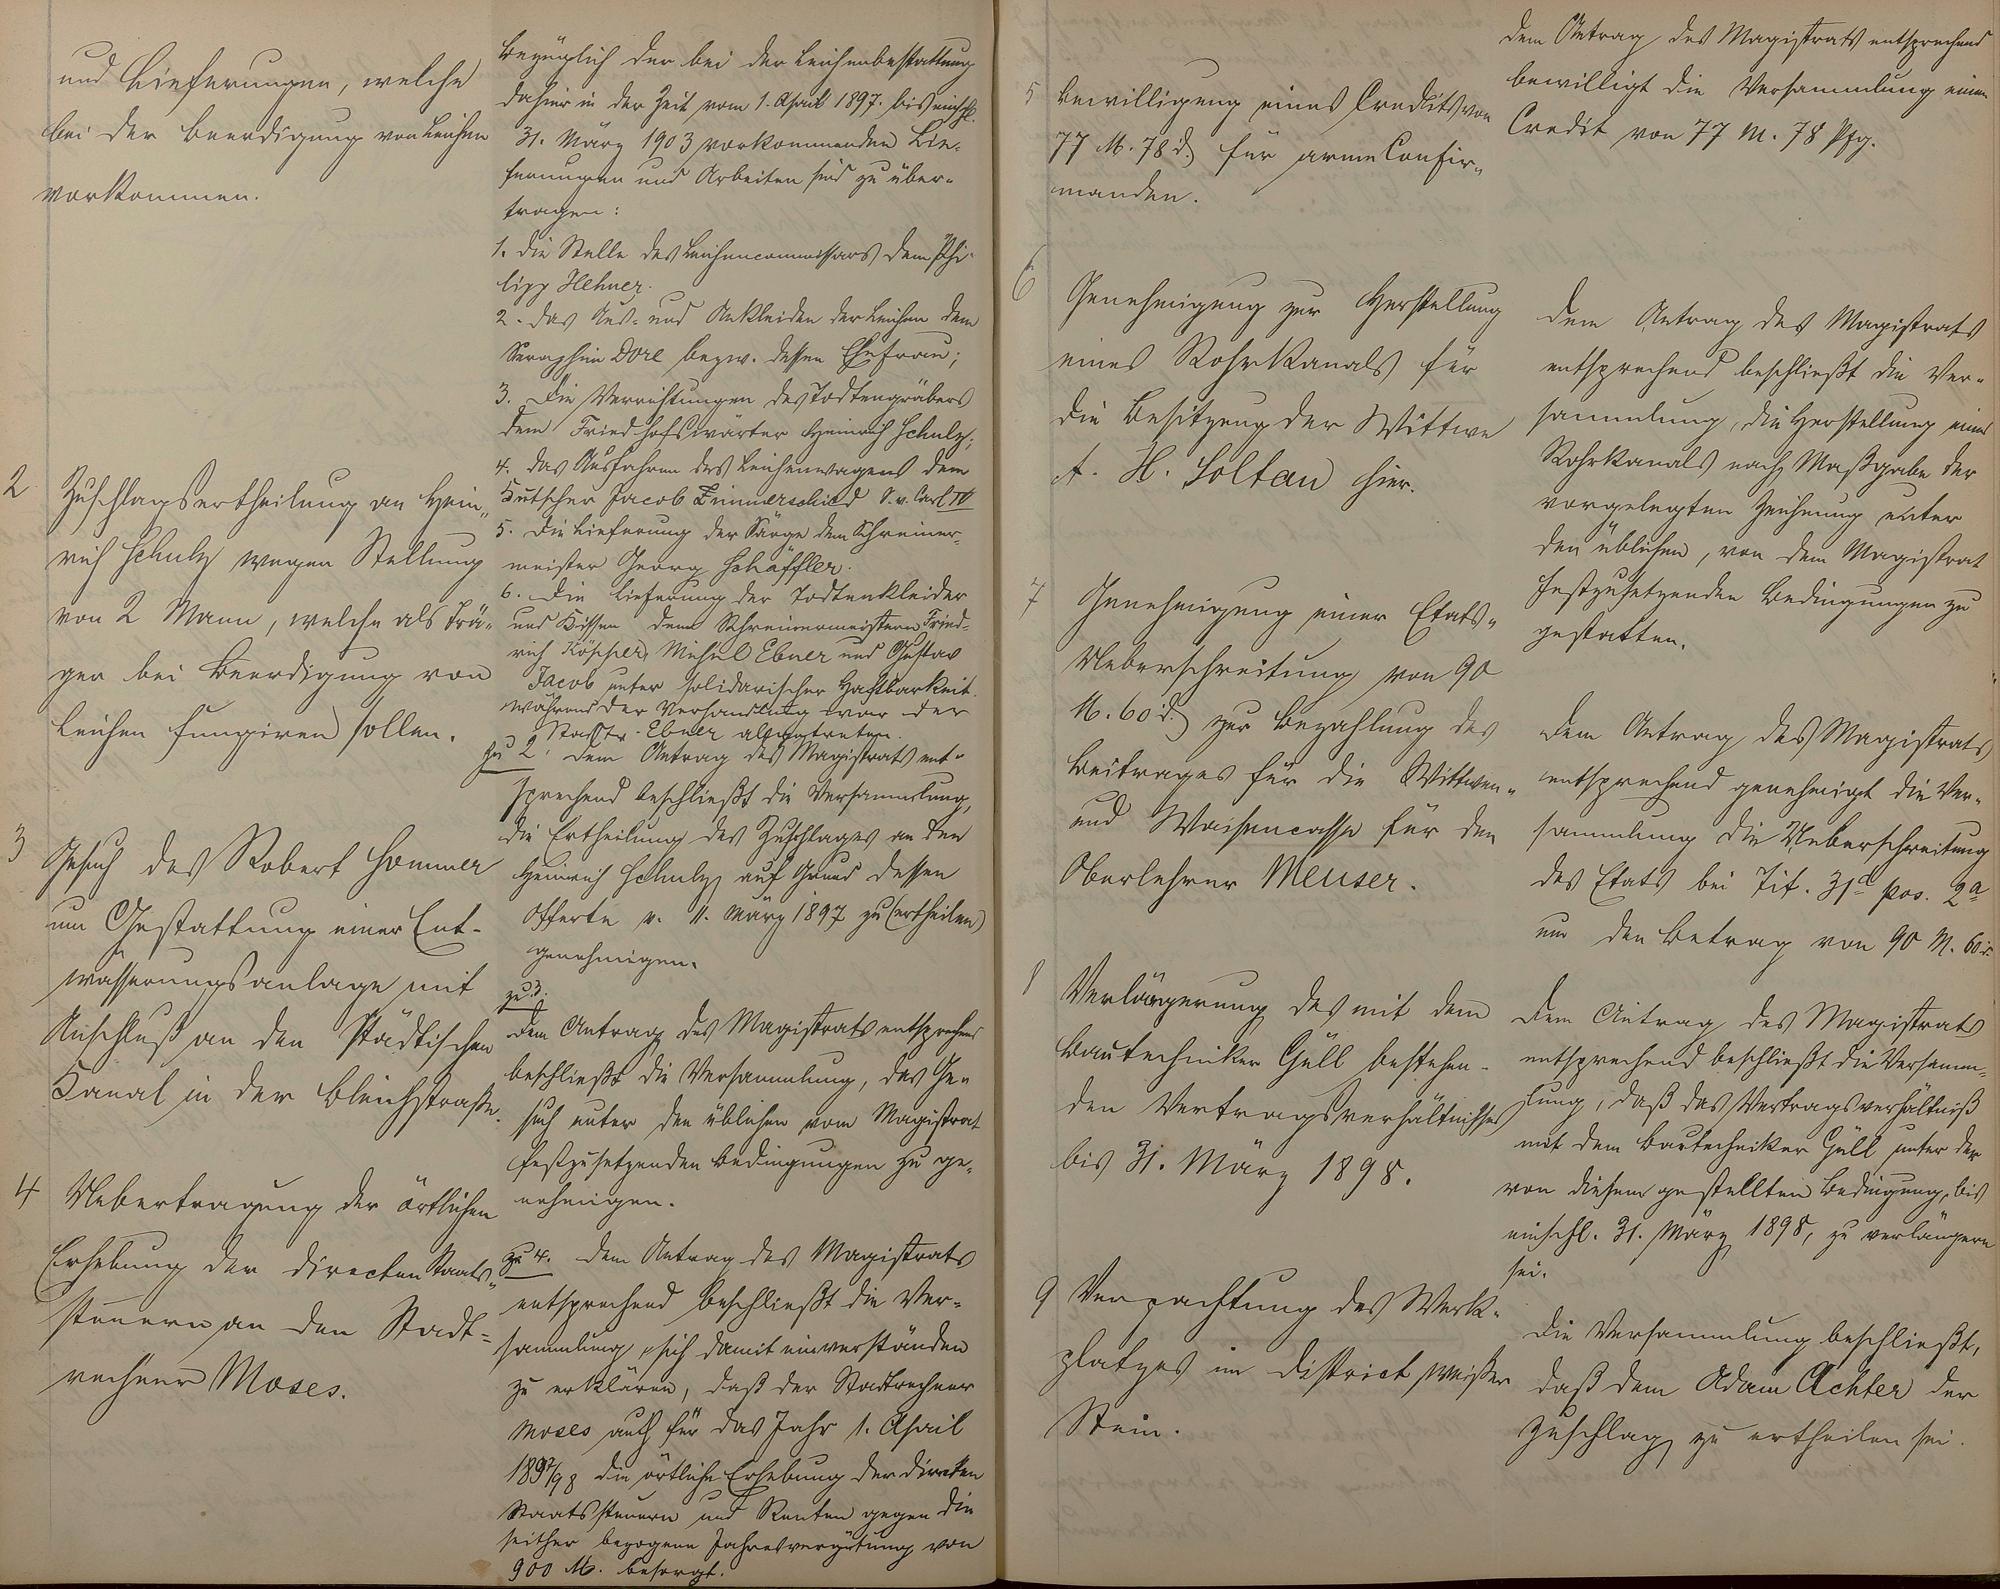 und Lieferungen, welche
bei der Beerdigung von Leichen
vorkommen.
2 Zuschlagsertheilung an Hein-
rich Schulz wegen Stellung
von 2 Mann, welche als Trä-
ger bei Beerdigung von
Leichen fungiren sollen.
3 Gesuch des Robert Hommer
um Gestattung einer Ent-
wässerungsanlage mit
Anschluß an den städtischen
Canal in der Bleichstraße.
4 Uebertragung der örtlichen
Erhebung der directen Staats-
steuern an den Stadt-
rechner Moses.
Bezüglich der bei der Leichenbestattung
dahier in der Zeit vom 1. April 1897. bis einschl.
31. März 1903 vorkommenden Lie-
ferungen und Arbeiten sind zu über-
tragen:
1. die Stelle des Leichencommissars dem Phi-
lipp Hehner.
2. das Aus- und Ankleiden der Leichen dem
Seraphim Dore bezw. dessen Ehefrau;
3. Die Verrichtungen des Todtengräbers
dem Friedhofswärter Heinrich Schulz;
4. das Ausfahren des Leichenwagens dem
Kutscher Jacob Zimmerschied S. v. Carl IV
5. Die Lieferung der Särge dem Schreiner-
meister Georg Schäffler.
6. Die Lieferung der Todtenkleider
und Kissen dem Schreinermeistern Fried-
rich Köpper, Michel Ebner und Gustav
Jacob unter solidarischer Haftbarkeit.
während der Verhandlung war der
Stadtv. Ebner abgetreten.
zu 2. Dem Antrag des Magistrats ent-
sprechend beschließt die Versammlung,
die Ertheilung des Zuschlages an den
Heinrich Schulz auf Grund dessen
Offerte v. 11. März 1897 zu (ertheilen)
genehmigen.
zu 3.
Dem Antrag des Magistrats entsprechend
beschließt die Versammlung, das Ge-
such unter den üblichen vom Magistrat
festzusetzenden Bedingungen zu ge-
nehmigen.
zu 4. Dem Antrag des Magistrats
entsprechend beschließt die Ver-
sammlung, sich damit einverstanden
zu erklären, daß der Stadtrechner
Moses auch für das Jahr 1. April
1897/98 die örtliche Erhebung der directen
Staatssteuern und Renten gegen die
seither bezogene Jahresvergütung von
900 M. besorgt.
5 Bewilligung eines Credits von
77 M. 78 d. für arme Confir-
manden.
6 Genehmigung zur Herstellung
eines Rohrkanals für
die Besitzung der Wittwe
A. H. Soltau hier.
7 Genehmigung einer Etats-
Ueberschreitung von 90
M. 60 d. zur Bezahlung des
Beitrages für die Wittwen-
und Waisencasse für den
Oberlehrer Meuser.
8 Verlängerung des mit dem
Bautechniker Güll bestehen-
den Vertragsverhältnisses
bis 31. März 1898.
9 Verpachtung des Werk-
platzes im District weißer
Stein.
Dem Antrag des Magistrats entsprechend
bewilligt die Versammlung einen
Credit von 77 M. 78 Pfg.
Dem Antrag des Magistrats
entsprechend beschließt die Ver-
sammlung, die Herstellung eines
Rohrkanals nach Maßgabe der
vorgelegten Zeichnung unter
den üblichen, von dem Magistrat
festzusetzenden Bedingungen zu
gestatten.
Dem Antrag des Magistrats
entsprechend genehmigt die Ver-
sammlung die Ueberschreitung
des Etats bei Tit. 31d pos. 2a
um den Betrag von 90 M. 60 d.
Dem Antrag des Magistrats
entsprechend beschließt die Versamm-
lung, daß das Vertragsverhältniß
mit dem Bautechniker Güll unter der
von diesem gestellten Bedingung, bis
einschl. 31. März 1898, zu verlängern
sei.
Die Versammlung beschließt,
daß dem Adam Achter der
Zuschlag zu ertheilen sei.